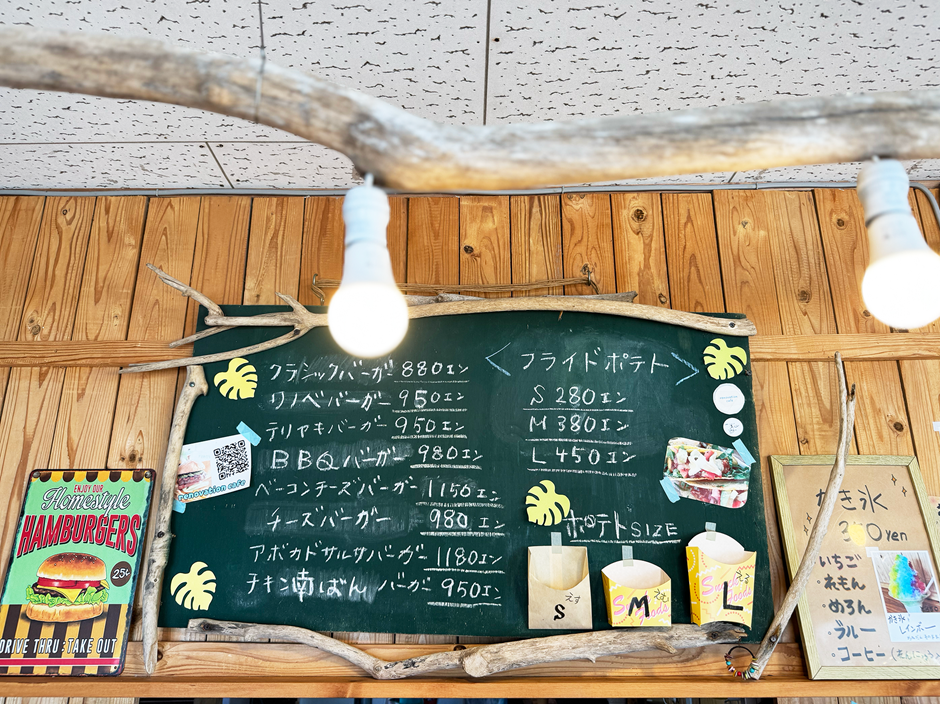 クラシックバーガ 880エン
リノベバーガー 950エン
テリヤキバーガー 950エン
BBQバーガー 980エン
ベーコンチーズバーガー 1150エン
チーズバーガー 980エン
アボカドサルサバーガー 1180エン
チキン南ばんバーガー 950エン
renovation cafe
<フライドポテト>
S 280エン
M 380エン
L 450エン
ポテトSIZE
S
えす
M
えむ
L
ENJOY OUR
Homestyle
HAMBURGERS
25¢
DRIVE THRU & TAKE OUT
かき氷
yen
・いちご
・れもん
・めろん
・ブルー
・コーヒー
レインボー